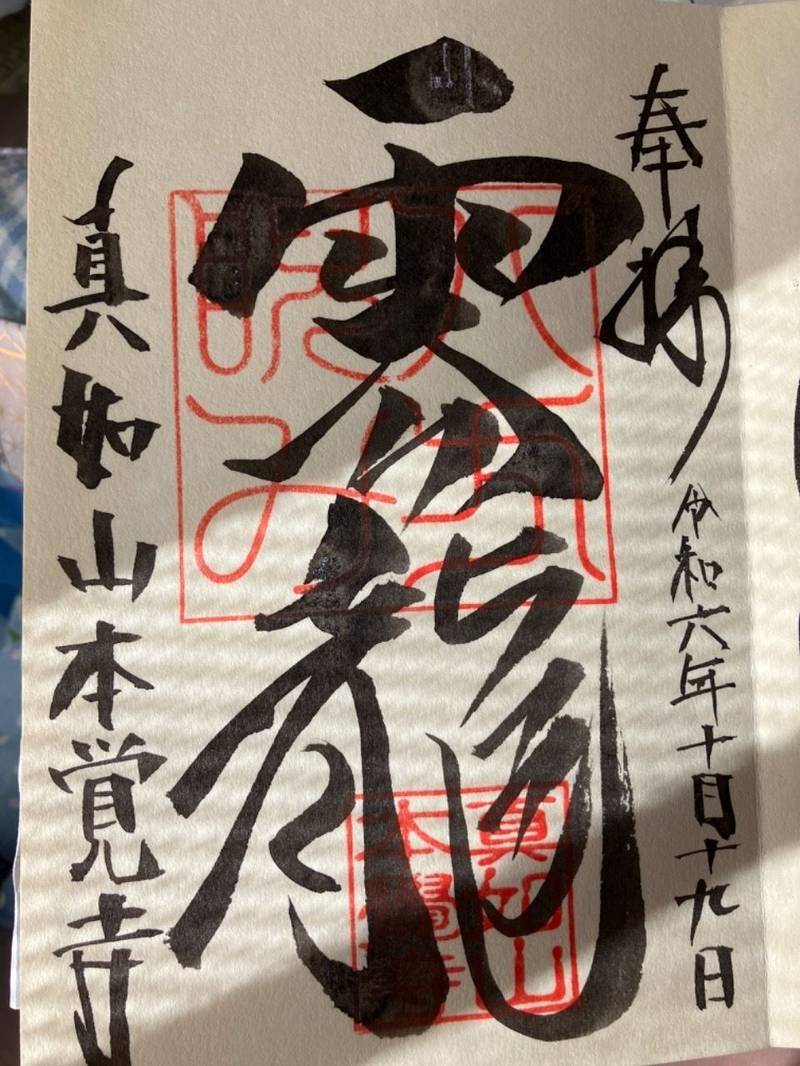 奉拝
令和六年十月十九日
雲龍
真如山本覚寺
真如山
本覺寺